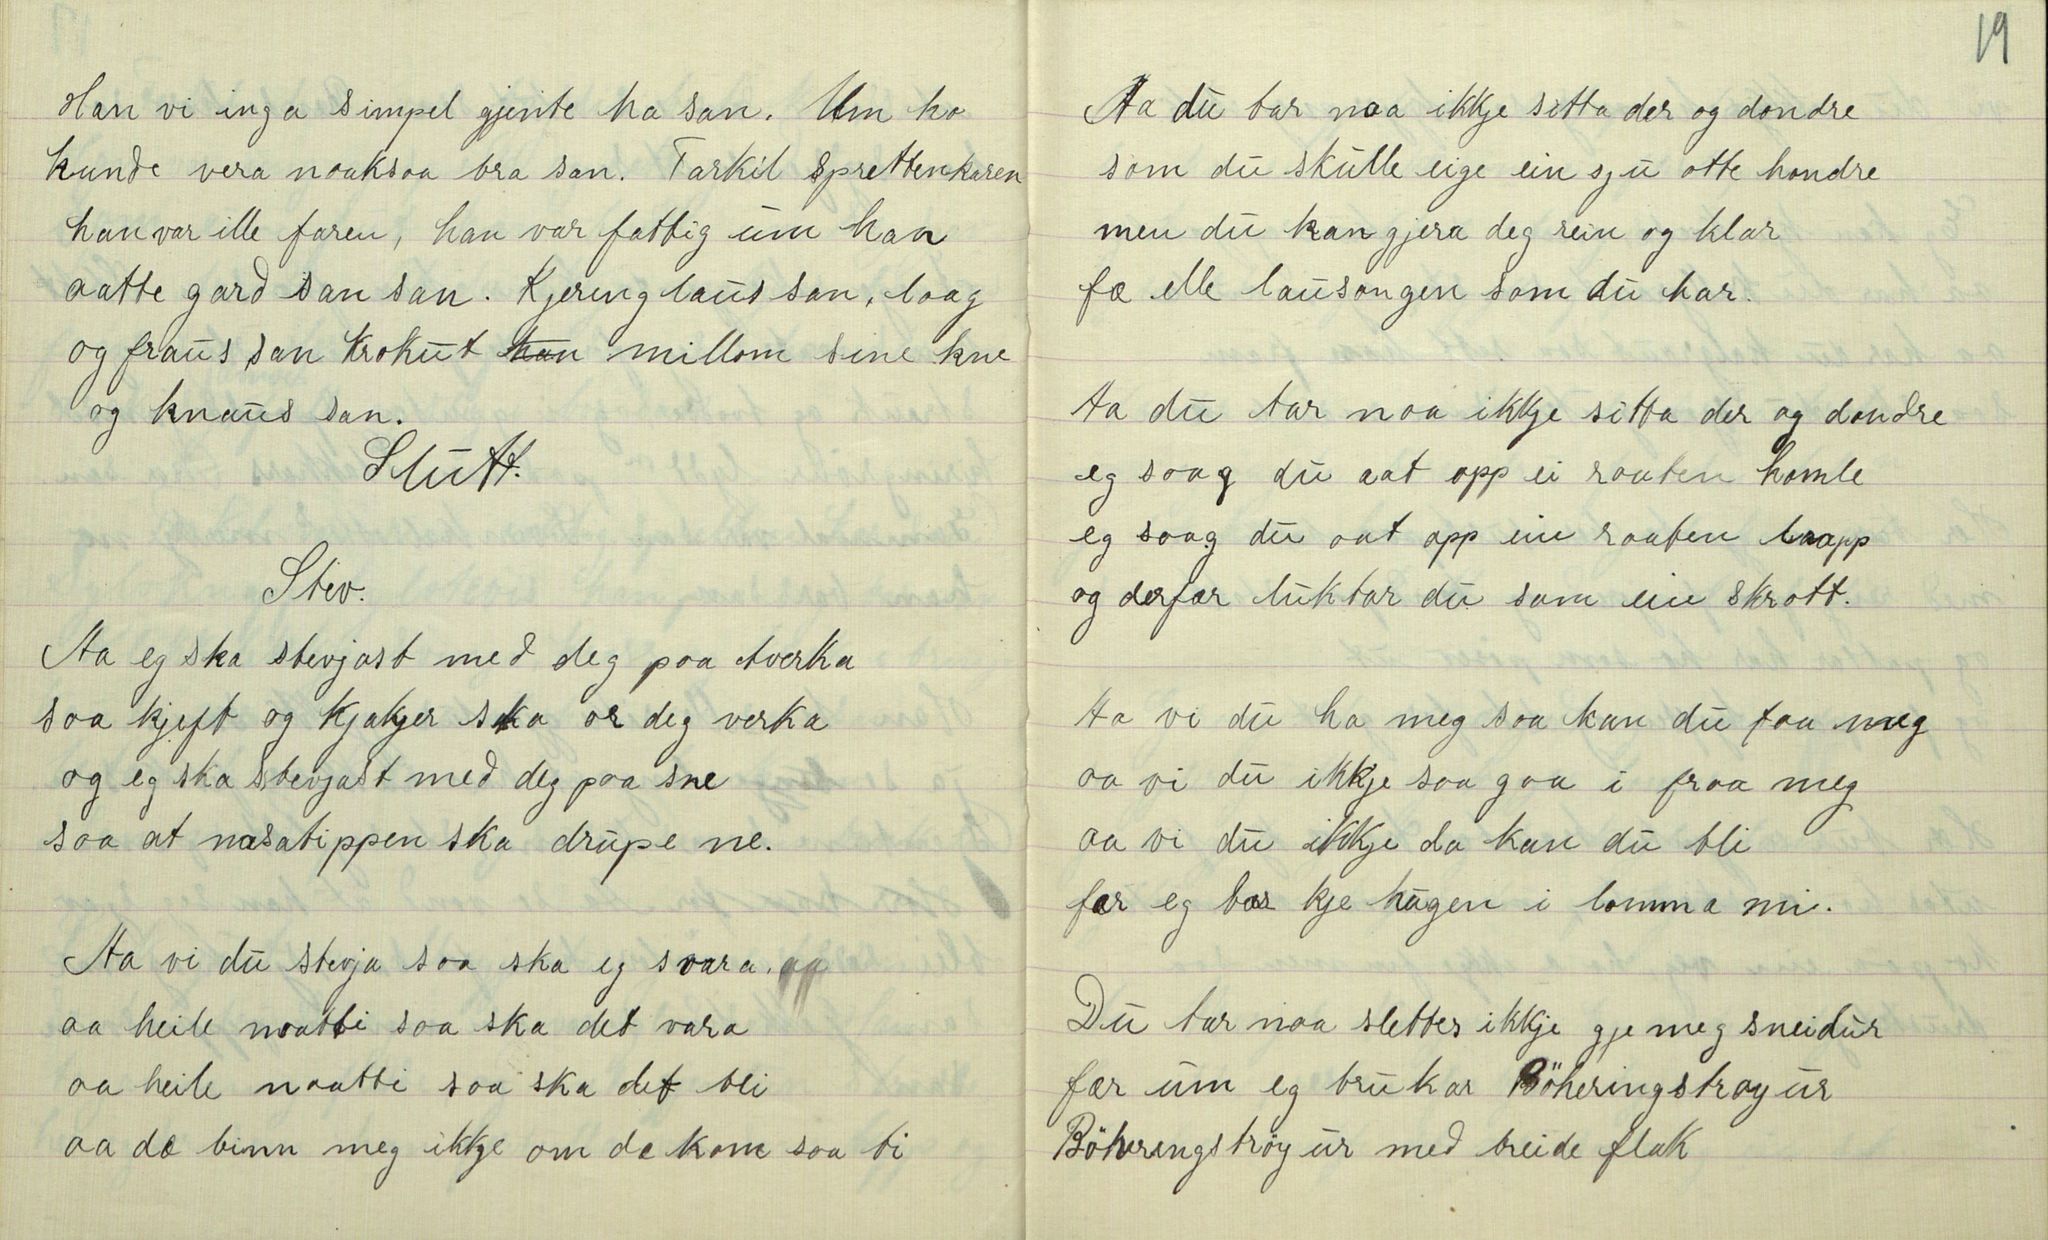 Han vi inga simpel gjente ha san. Um ho
kunde vera noaksaa bra san. Tarkil Sprettenkaren
han var ille faren, han var fattig um han
aatte gard san san. Kjeringlaus san, laag
og fraus san krokut han millom sine kne
og knaus san.
Slutt.
Stev.
Aa eg ska stevjast med deg paa tverka
saa kjeft og kjakjer ska or deg verka
og eg ska stevjast med deg paa sne
saa at nasatippen ska drupe ne.
Aa vi du stevja saa ska eg svara,
aa heile naatti saa ska det vara
aa heile naatti saa ska det bli
aa dæ binn meg ikkje om dæ kom saa ti
19
Aa du tar naa ikkje sitta der og dondre
som du skulle eige ein sju otte hondre
men du kan gjera deg rein og klar
fæ elle lausongen som du har.
Aa du tar naa ikkje sitta der og dondre
eg saag du aat opp ei raaten homle
eg saag du aat opp ein raaten laapp
og derfær luktar du som ein skrott.
Aa vi du ha meg saa kan du faa meg
aa vi du ikkje saa gaa i fraa meg
aa vi du ikkje da kan du bli
fær eg bær kje hugen i lomma mi.
Du tar naa slettes ikkje gje meg sneidur
fær um eg brukar Böheringstrøyur
Böheringströyur med breide flak